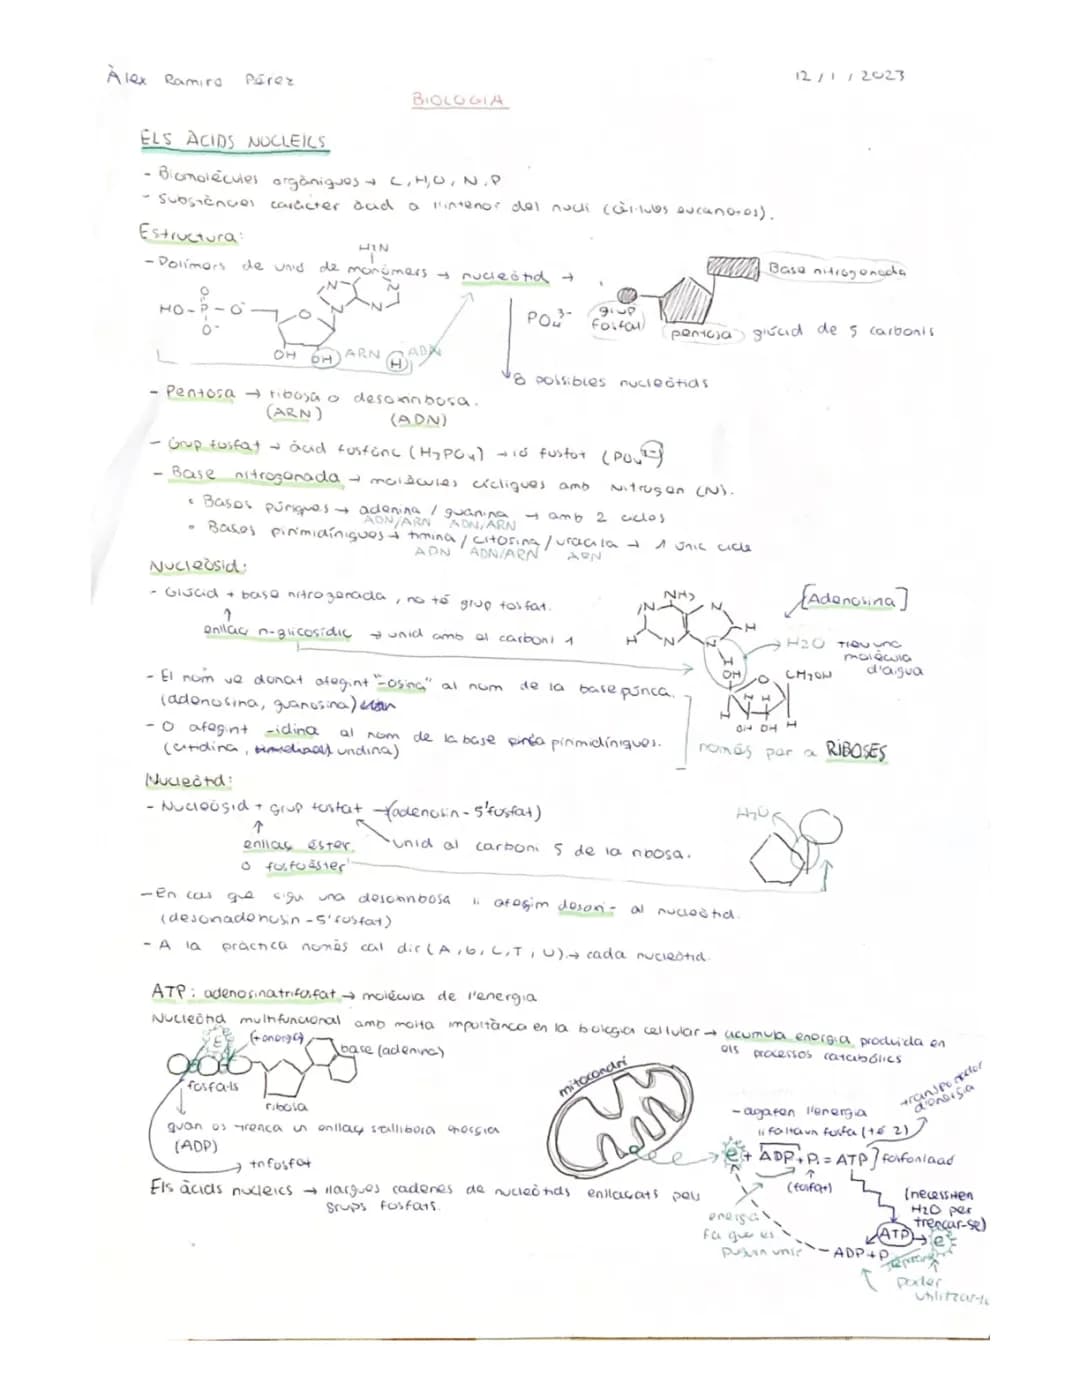 Àlex Ramiro Pérez
12/1/2023
BIOLOGIA
ELS ÀCIDS NUCLEICS
- Biomolècules orgàniques → C, H, O, N, P
- Substàncies caràcter àcid a l'interior del nucli (cèl·lules eucariotes).
Estructura:
- Polímers de unió de monòmers → nucleòtid →
H2N
N
N
N
N
HO-P-O
O
O-
O
OH OH ARN H ADN
Base nitrogenada
PO4 3-
grup fosfat
pentosa glúcid de 5 carbonis
8 possibles nucleòtids
- Pentosa → ribosa o desoxiribosa.
(ARN) (ADN)
- Grup fosfat → àcid fosfòric (H3PO4) → ió fosfat (PO4 3-)
- Base nitrogenada → molècules cícliques amb Nitrogen (N).
• Bases púriques → adenina / guanina → amb 2 cicles
ADN/ARN ADN/ARN
• Bases pirimidíniques → timina / citosina / uracila → 1 únic cicle
ADN ADN/ARN ARN
Nucleòsid:
- Glúcid + base nitrogenada, no té grup fosfat.
enllaç n-glicosídic → unió amb el carboni 1
[Adenosina]
NH2
N
N
N
N
H
H
H
OH
H2O Treu una molècula d'aigua
CH2OH
O
H H
H
H
OH OH
- El nom ve donat afegint "-osina" al nom de la base púrica.
(adenosina, guanosina)
- O afegint -idina al nom de la base pirimidíniques.
(citidina, uridina)
només per a RIBOSES
Nucleòtid:
- Nucleòsid + grup fosfat → (adenosin-5'fosfat)
enllaç éster
o fosfoèster
unió al carboni 5 de la ribosa.
H2O
- En cas que sigui una desoxiribosa li afegim desoxi- al nucleòtid.
(desoxiadenosin-5'fosfat)
- A la pràctica només cal dir (A, G, C, T, U) → cada nucleòtid.
ATP: adenosinatrifosfat → molècula de l'energia
Nucleòtid multifuncional amb molta importància en la biologia cel·lular → acumula energia produïda en
els processos catabòlics
E
(+energia)
base (adenina)
fosfats
ribosa
quan es trenca un enllaç s'allibera energia
(ADP)
trifosfat
mitocondri
- agafen l'energia
li falta un fosfat (té 2)
transportador d'energia
e + ADP + Pi = ATP ] fosforilació
(fosfat)
(necessiten H2O per trencar-se)
energia
fa que es
puguin unir
ATP → e
ADP + P
separar
poder
utilitzar-la
Els àcids nucleics → llargues cadenes de nucleòtids enllaçats pels
grups fosfats.